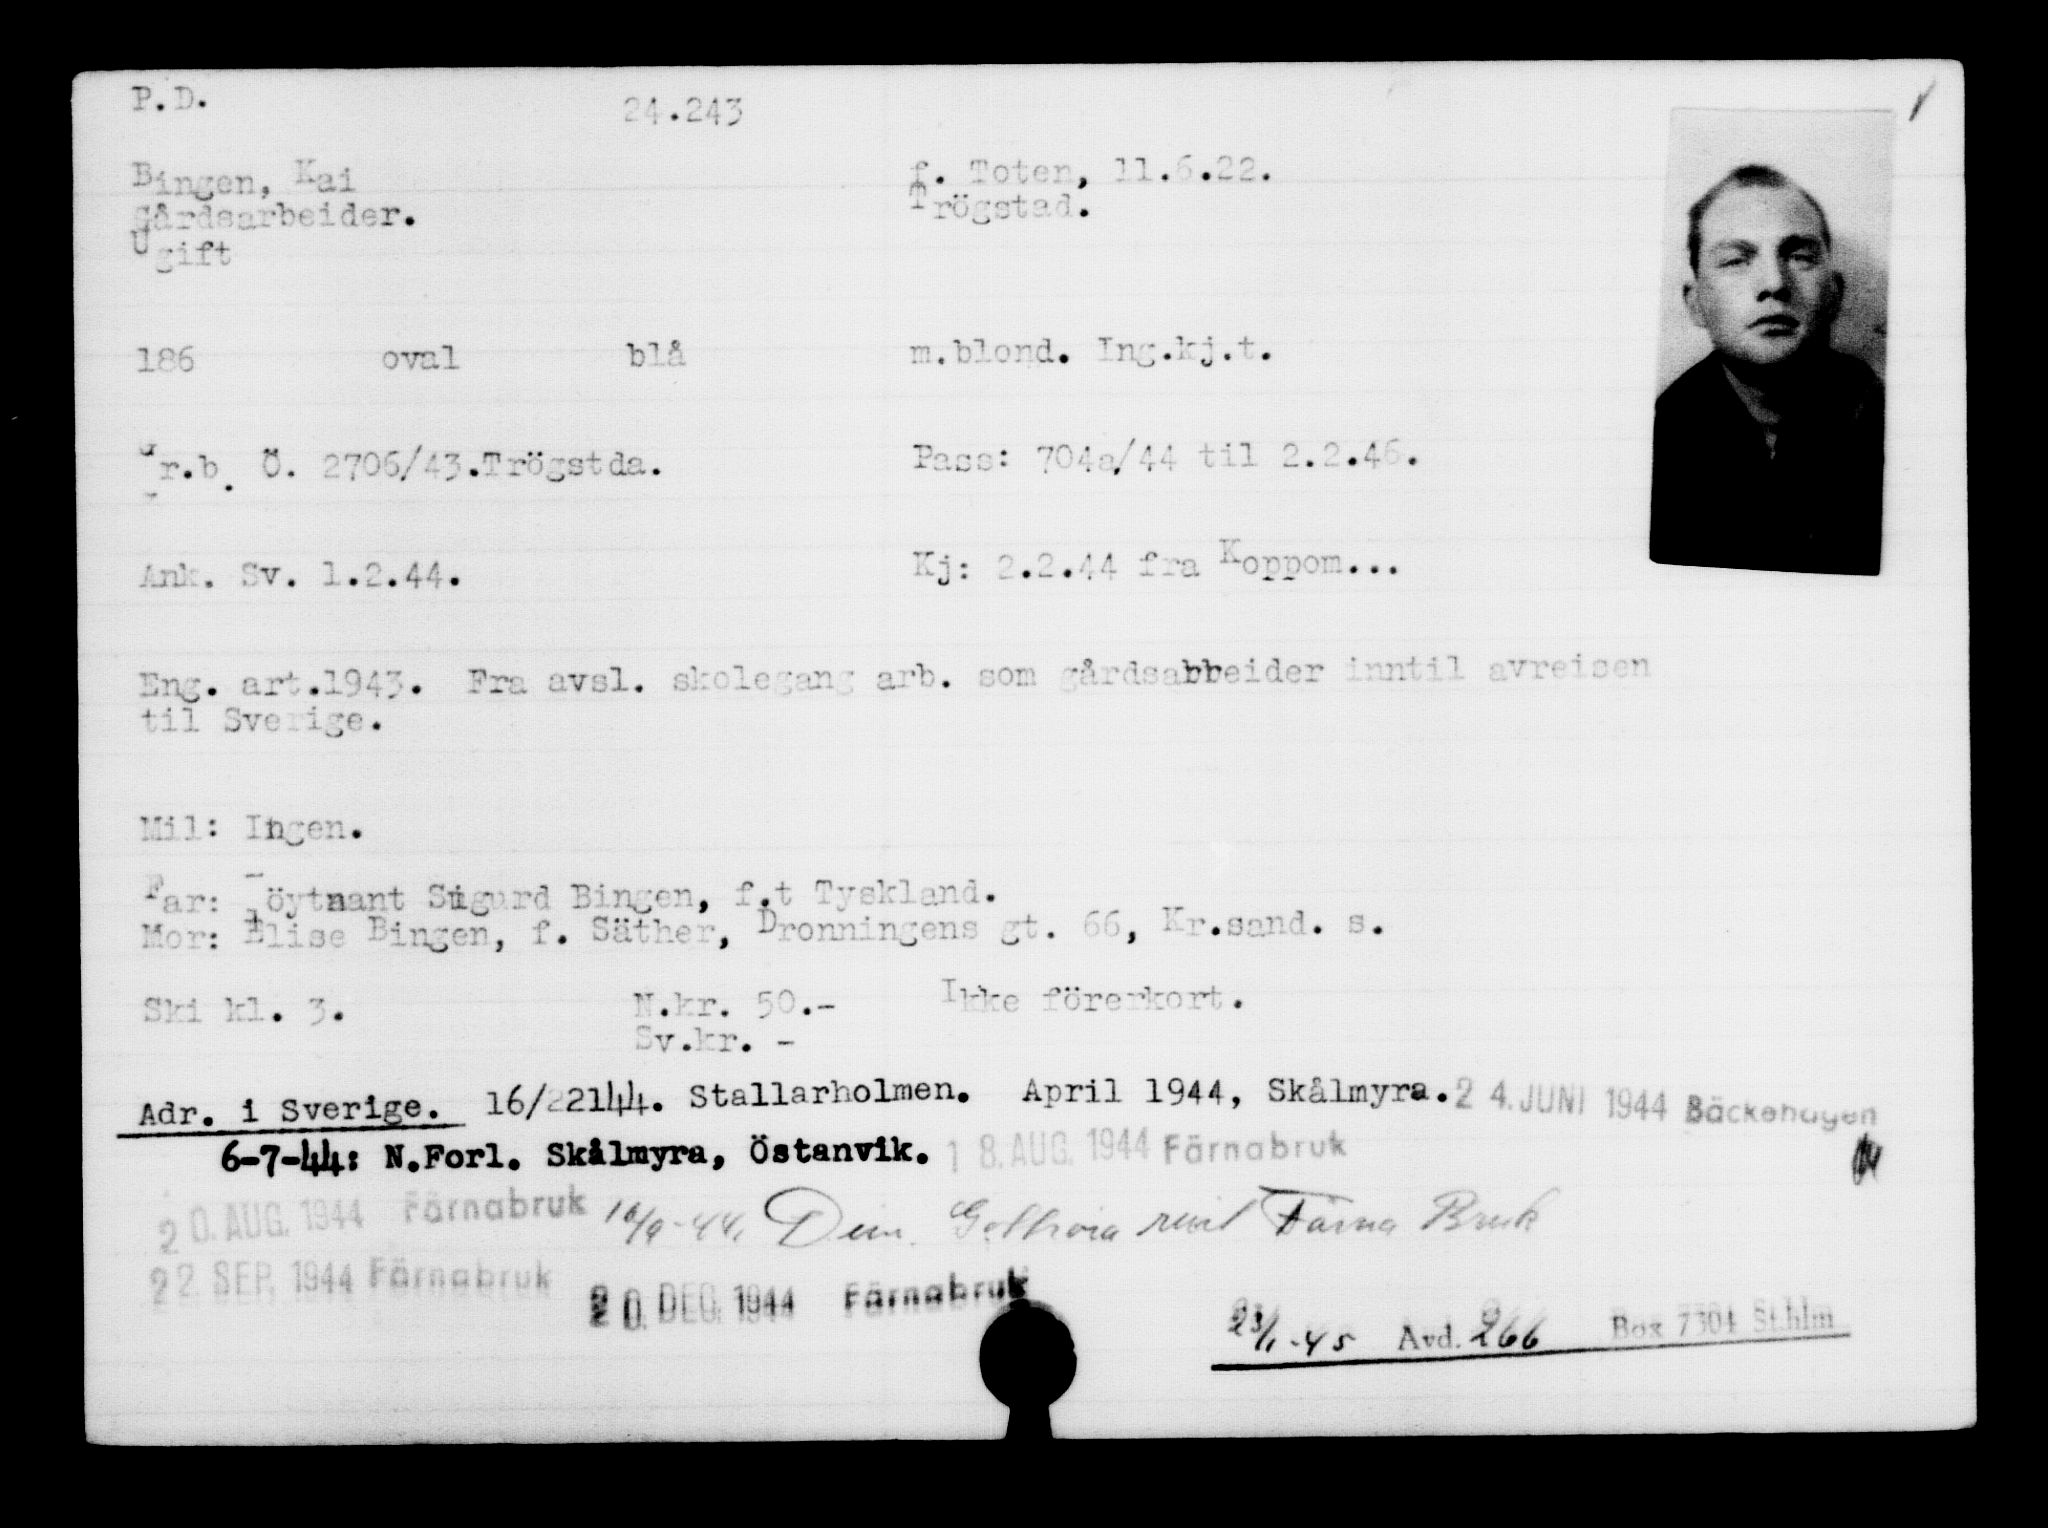 P.D. 24.243
Bingen, Kai f. Toten, 11.6.22.
Gårdsarbeider. Trögstad.
Ugift
186 oval blå m.blond. Ing.kj.t.
Gr.b. Ö. 2706/43.Trögstda. Pass: 704a/44 til 2.2.46.
Ank. Sv. 1.2.44. Kj: 2.2.44 fra Koppom...
Eng. art.1943. Fra avsl. skolegang arb. som gårdsarbeider inntil avreisen
til Sverige.
Mil: Ingen.
Far: Löytnant Sigurd Bingen, f.t Tyskland.
Mor: Elise Bingen, f. Säther, Dronningens gt. 66, Kr.sand. s.
Ski kl. 3. N.kr. 50.- Ikke förerkort.
Sv.kr. -
Adr. i Sverige. 16/22144. Stallarholmen. April 1944, Skålmyra. 24. JUNI 1944 Bäckehagen
6-7-44: N.Forl. Skålmyra, Östanvik. 18. AUG. 1944 Färnabruk
20. AUG. 1944 Färnabruk 16/9-44. Dim. Färna Bruk
22. SEP. 1944 Färnabruk 20. DEC. 1944 Färnabruk
23/1-45 Avd. 266 Box 7304 St.hlm